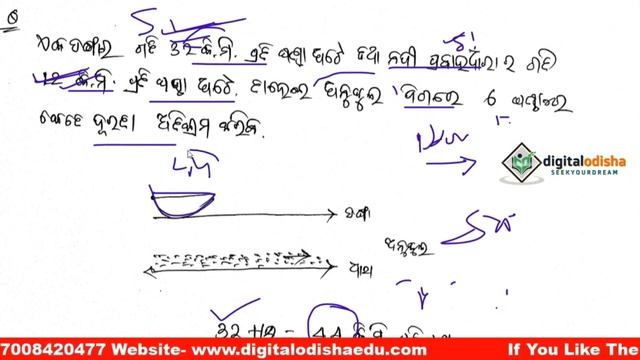 Q
ଏକ ଡଙ୍ଗାର ଗତି 32 କି.ମି. ପ୍ରତି ଘଣ୍ଟା ଅଟେ ତଥା ନଦୀ ପ୍ରବାହର ଗତି
12 କି.ମି. ପ୍ରତି ଘଣ୍ଟା ଅଟେ, ତାହେଲେ ଅନୁକୂଳ ଦିଗରେ 6 ଘଣ୍ଟାରେ
କେତେ ଦୂରତା ଅତିକ୍ରମ କରିବ.
digitalodisha
SEEKYOURDREAM
ଡଙ୍ଗା
ଅନୁକୂଳ
32 + 12 = 44
7008420477 Website- www.digitalodishaedu.com If You Like The